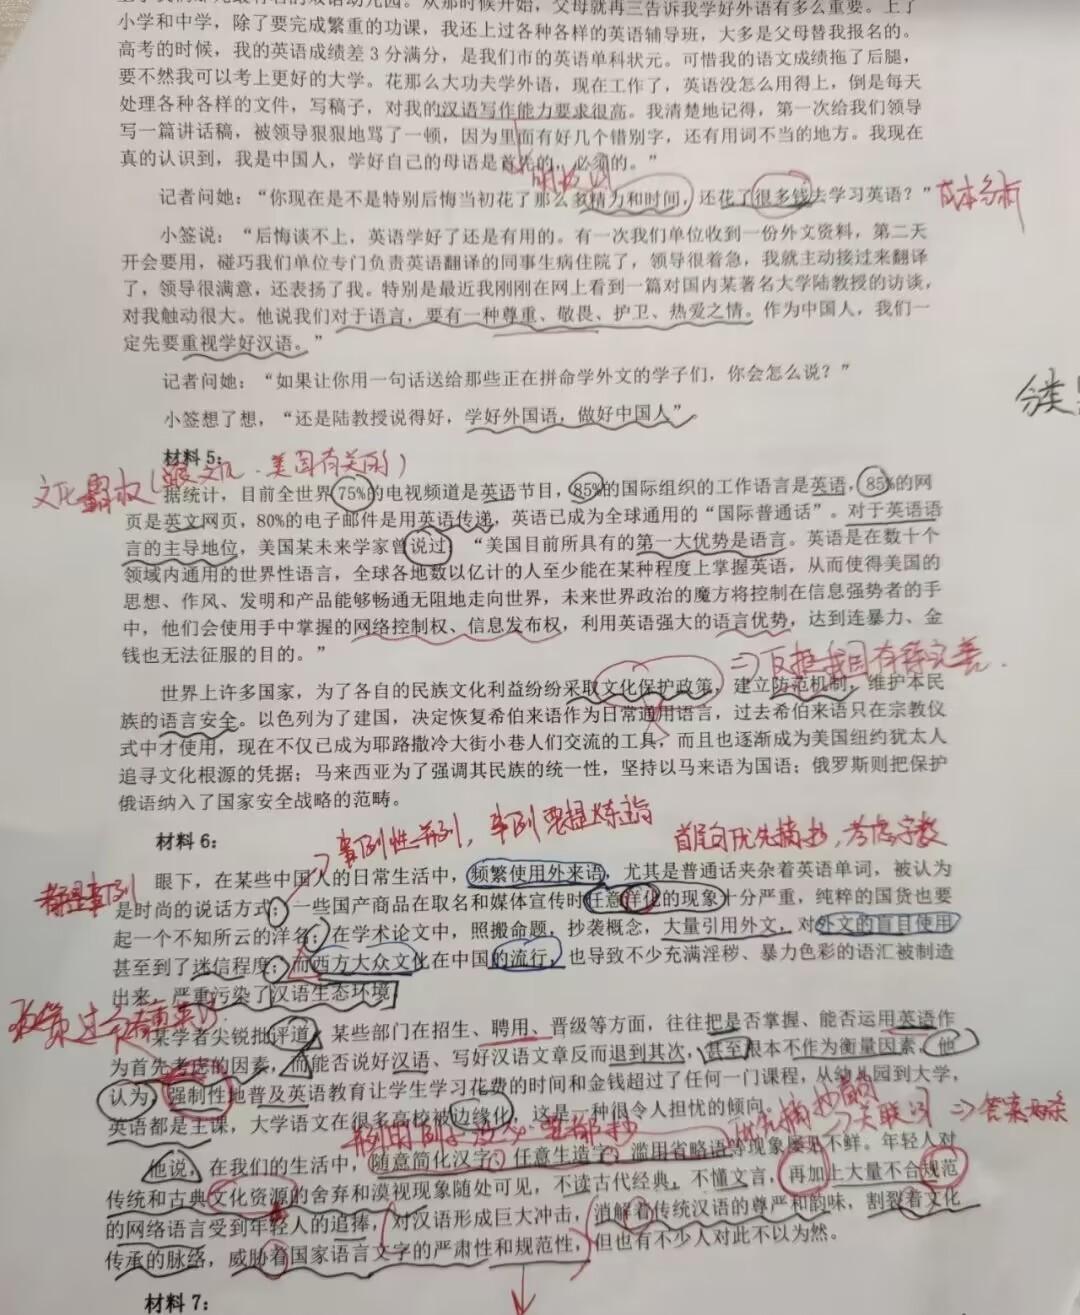 小学和中学，除了要完成繁重的功课，我还上过各种各样的英语辅导班，大多是父母替我报名的。
高考的时候，我的英语成绩差3分满分，是我们市的英语单科状元。可惜我的语文成绩拖了后腿，
要不然我可以考上更好的大学。花那么大功夫学外语，现在工作了，英语没怎么用得上，倒是每天
处理各种各样的文件，写稿子，对我的汉语写作能力要求很高。我清楚地记得，第一次给我们领导
写一篇讲话稿，被领导狠狠地骂了一顿，因为里面有好几个错别字，还有用词不当的地方。我现在
真的认识到，我是中国人，学好自己的母语是首先的，必须的。”
记者问她：“你现在是不是特别后悔当初花了那么多精力和时间，还花了很多钱去学习英语？”
成本分析
小签说：“后悔谈不上，英语学好了还是有用的。有一次我们单位收到一份外文资料，第二天
开会要用，碰巧我们单位专门负责英语翻译的同事生病住院了，领导很着急，我就主动接过来翻译
了，领导很满意，还表扬了我。特别是最近我刚刚在网上看到一篇对国内某著名大学陆教授的访谈，
对我触动很大。他说我们对于语言，要有一种尊重、敬畏、护卫、热爱之情。作为中国人，我们一
定先要重视学好汉语。”
记者问她：“如果让你用一句话送给那些正在拼命学外文的学子们，你会怎么说？”
分类
小签想了想，“还是陆教授说得好，学好外国语，做好中国人”
材料5：
文化霸权（ 美国有关的）
据统计，目前全世界75%的电视频道是英语节目，85%的国际组织的工作语言是英语，85%的网
页是英文网页，80%的电子邮件是用英语传递，英语已成为全球通用的“国际普通话”。对于英语语
言的主导地位，美国某未来学家曾说过：“美国目前所具有的第一大优势是语言。英语是在数十个
领域内通用的世界性语言，全球各地数以亿计的人至少能在某种程度上掌握英语，从而使得美国的
思想、作风、发明和产品能够畅通无阻地走向世界，未来世界政治的魔方将控制在信息强势者的手
中，他们会使用手中掌握的网络控制权、信息发布权，利用英语强大的语言优势，达到连暴力、金
钱也无法征服的目的。”
反推我国有待完善.
世界上许多国家，为了各自的民族文化利益纷纷采取文化保护政策，建立防范机制，维护本民
族的语言安全。以色列为了建国，决定恢复希伯来语作为日常通用语言，过去希伯来语只在宗教仪
式中才使用，现在不仅已成为耶路撒冷大街小巷人们交流的工具，而且也逐渐成为美国纽约犹太人
追寻文化根源的凭据；马来西亚为了强调其民族的统一性，坚持以马来语为国语；俄罗斯则把保护
俄语纳入了国家安全战略的范畴。
案例性并列，案例要提炼主旨
首尾句优先摘抄，考虑字数
材料6：
都是案例
眼下，在某些中国人的日常生活中，频繁使用外来语，尤其是普通话夹杂着英语单词，被认为
是时尚的说话方式；一些国产商品在取名和媒体宣传时任意洋化的现象十分严重，纯粹的国货也要
起一个不知所云的洋名；在学术论文中，照搬命题，抄袭概念，大量引用外文，对外文的盲目使用
甚至到了迷信程度；而西方大众文化在中国的流行，也导致不少充满淫秽、暴力色彩的语汇被制造
出来，严重污染了汉语生态环境
某学者尖锐批评道，某些部门在招生、聘用、晋级等方面，往往把是否掌握、能否运用英语作
为首先考虑的因素，而能否说好汉语、写好汉语文章反而退到其次，甚至根本不作为衡量因素，他
认为，强制性地普及英语教育让学生学习花费的时间和金钱超过了任何一门课程，从幼儿园到大学，
英语都是主课，大学语文在很多高校被边缘化，这是一种很令人担忧的倾向。
他说，在我们的生活中，随意简化汉字、任意生造字、滥用省略语等现象屡见不鲜。年轻人对
传统和古典文化资源的舍弃和漠视现象随处可见，不读古代经典，不懂文言，再加上大量不合规范
的网络语言受到年轻人的追捧，对汉语形成巨大冲击，消解着传统汉语的尊严和韵味，割裂着文化
传承的脉络，威胁着国家语言文字的严肃性和规范性，但也有不少人对此不以为然。
材料7：